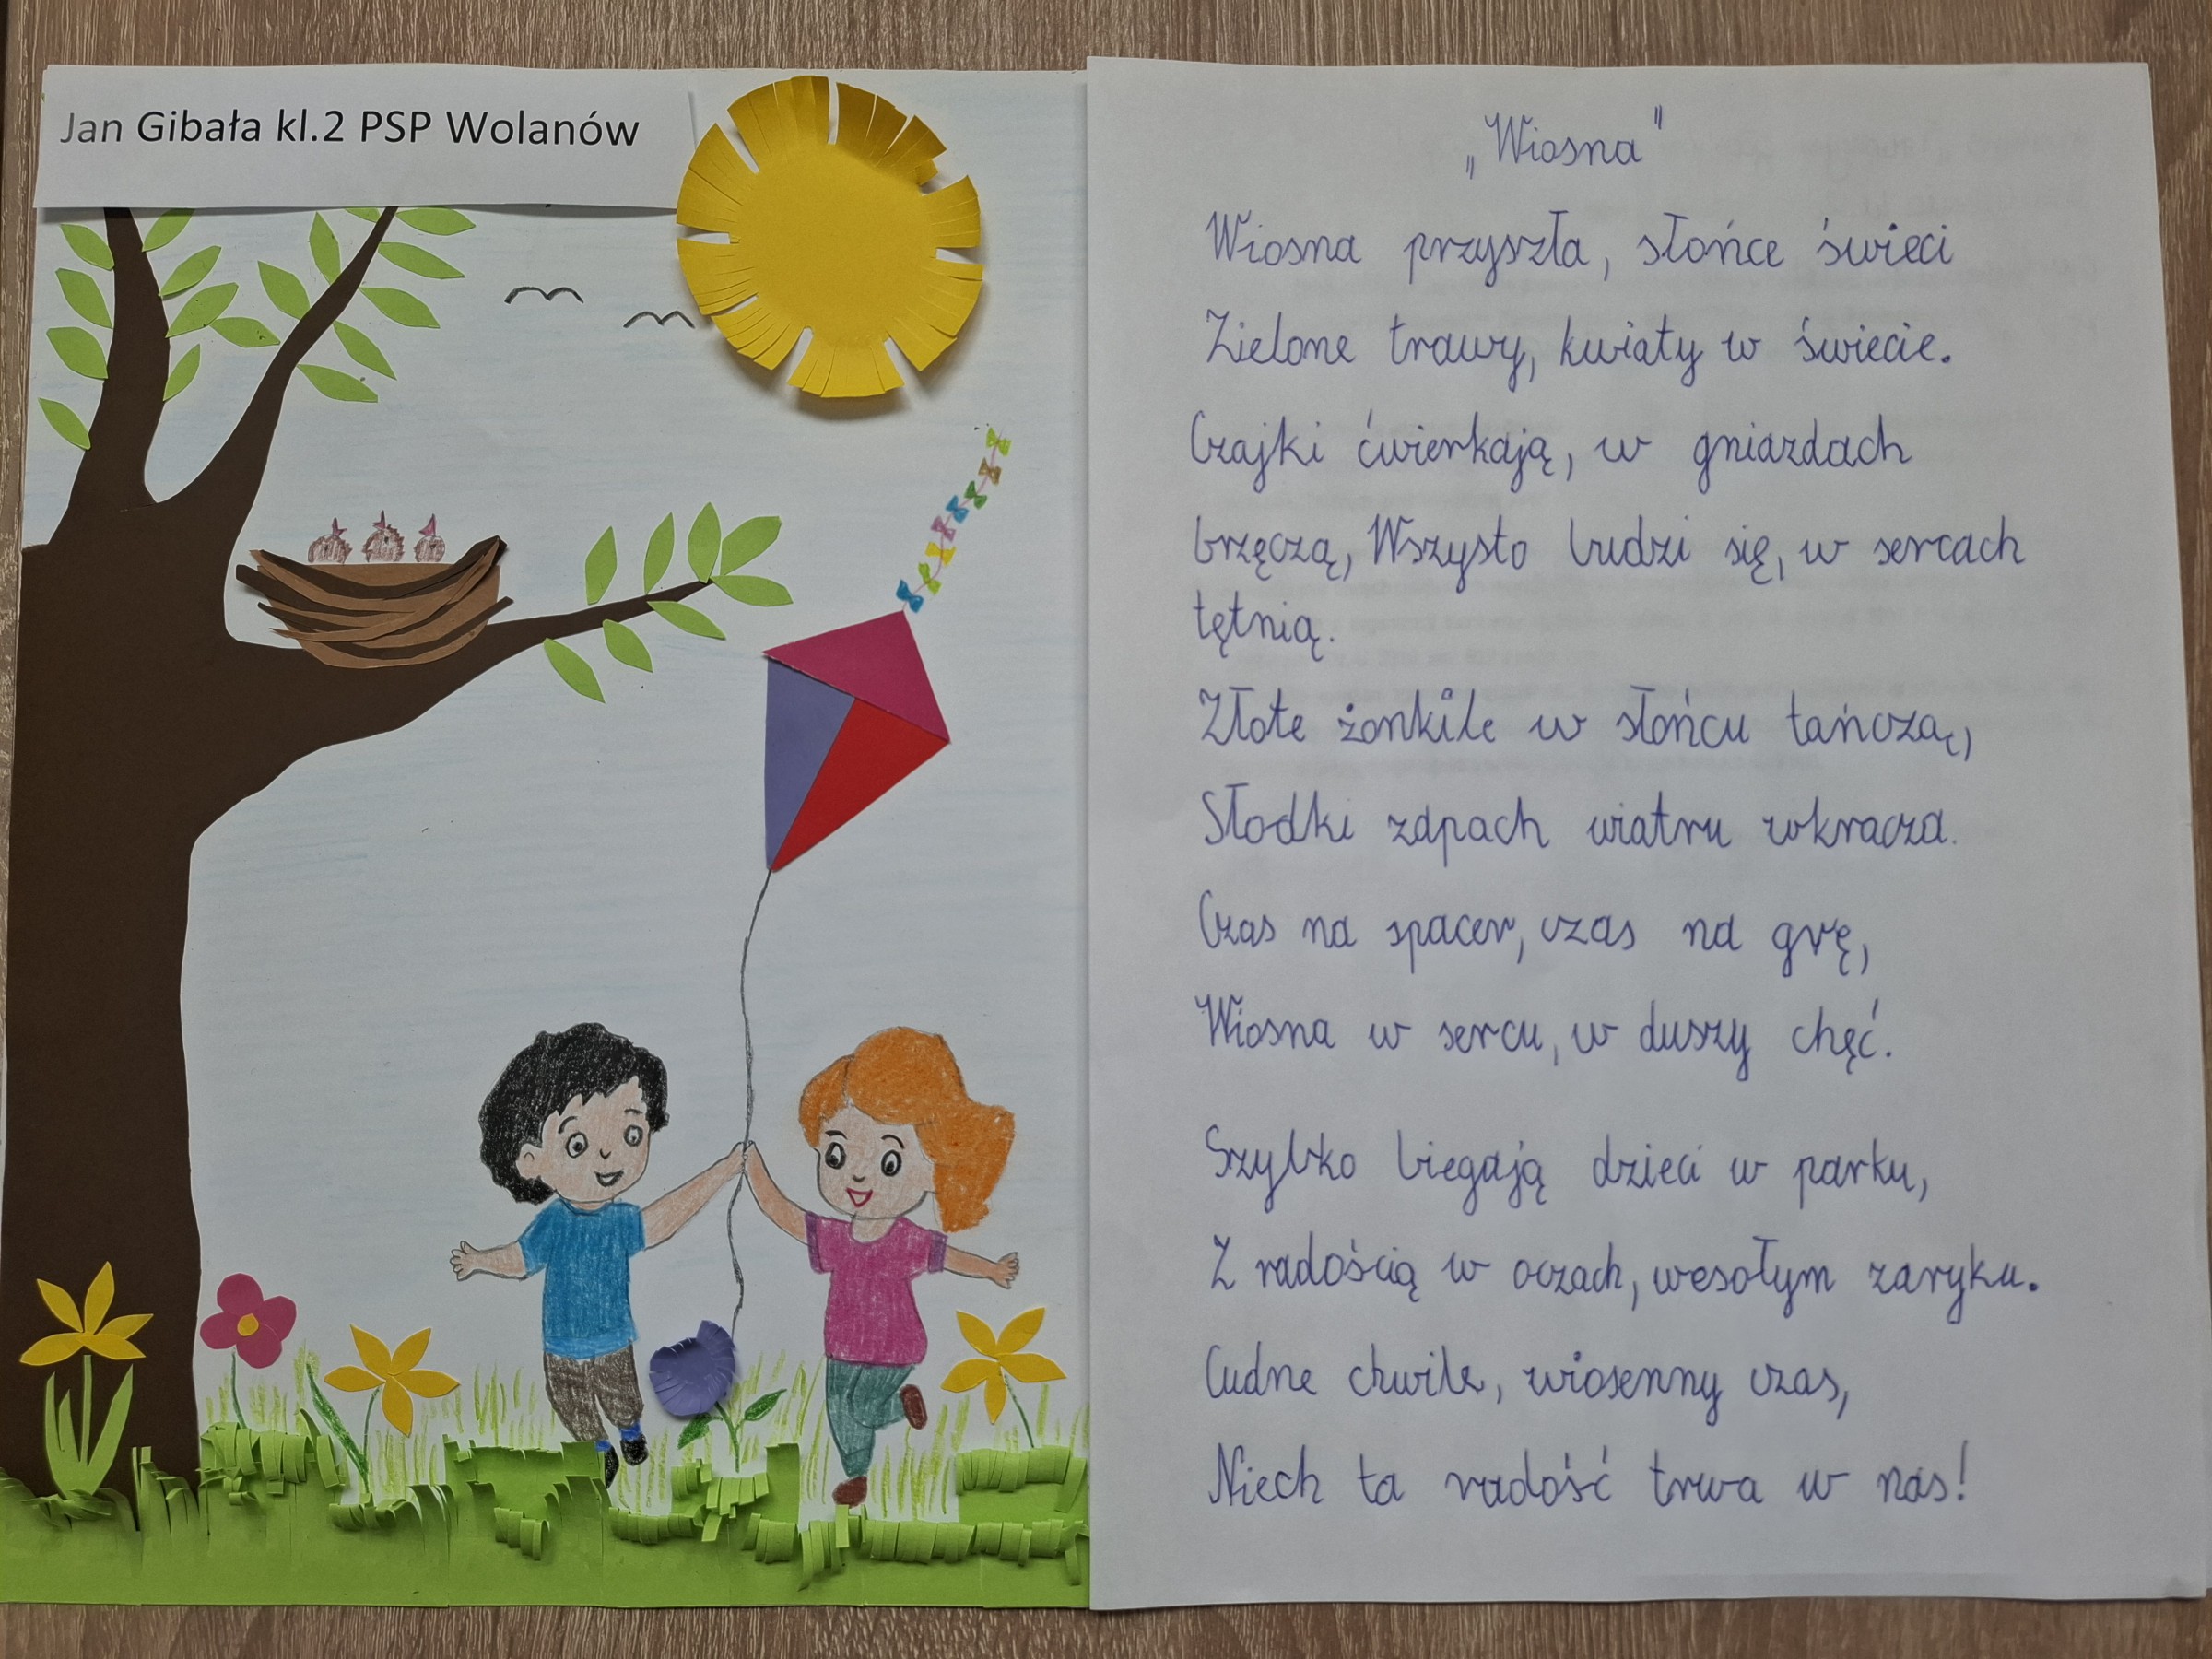 Jan Gibała kl.2 PSP Wolanów
„Wiosna"
Wiosna przyszła, słońce świeci
Zielone trawy, kwiaty w świecie.
Czajki ćwierkają, w gniazdach
brzęczą, Wszysto budzi się, w sercach
tętnią.
Złote żonkile w słońcu tańczą,
Słodki zapach wiatru wkracza.
Czas na spacer, czas na grę,
Wiosna w sercu, w duszy chęć.
Szybko biegają dzieci w parku,
Z radością w oczach, wesołym zaryku.
Cudne chwile, wiosenny czas,
Niech ta radość trwa w nas!